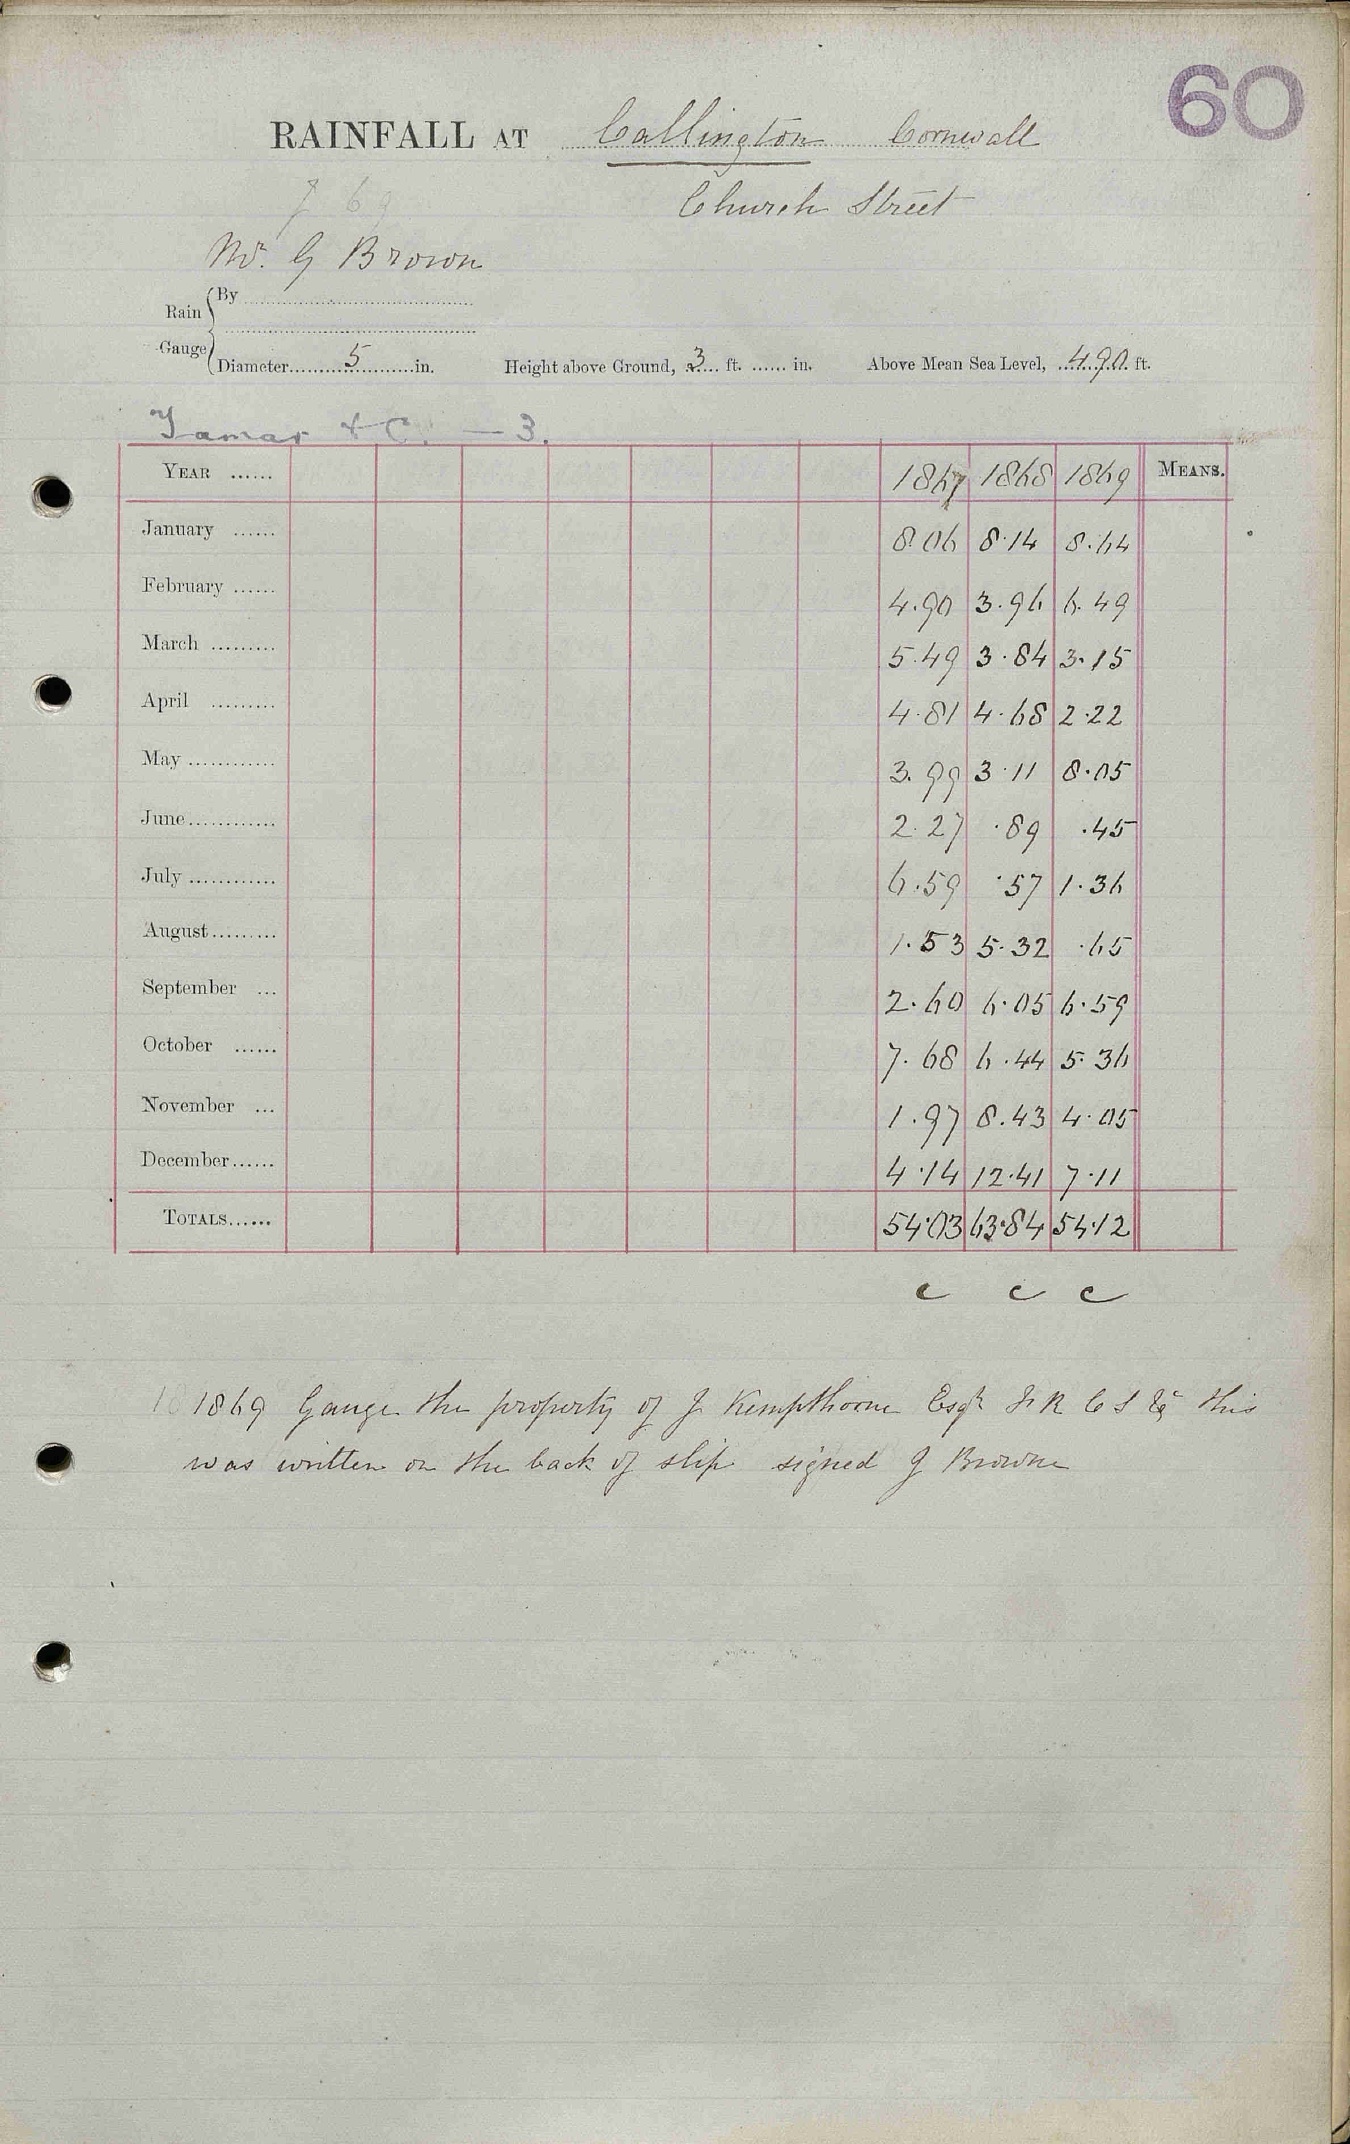 60
RAINFALL AT Callington Cornwall
Church Street
Mr. G Brown
Rain Gauge
By
Diameter 5 in. Height above Ground, 3 ft. in. Above Mean Sea Level, 490 ft.
Tamar & C. — 3.
YEAR 1867 1868 1869 MEANS.
January 8.06 8.14 8.64
February 4.90 3.96 6.49
March 5.49 3.84 3.15
April 4.81 4.68 2.22
May 3.99 3.11 8.05
June 2.27 .89 .45
July 6.59 .57 1.36
August 1.53 5.32 .65
September 2.60 6.05 6.59
October 7.68 6.44 5.36
November 1.97 8.43 4.05
December 4.14 12.41 7.11
TOTALS 54.03 63.84 54.12
c c c
1869 Gauge the property of J Kempthorne Esqr F R C S &c this
was written on the back of slip signed G Browne